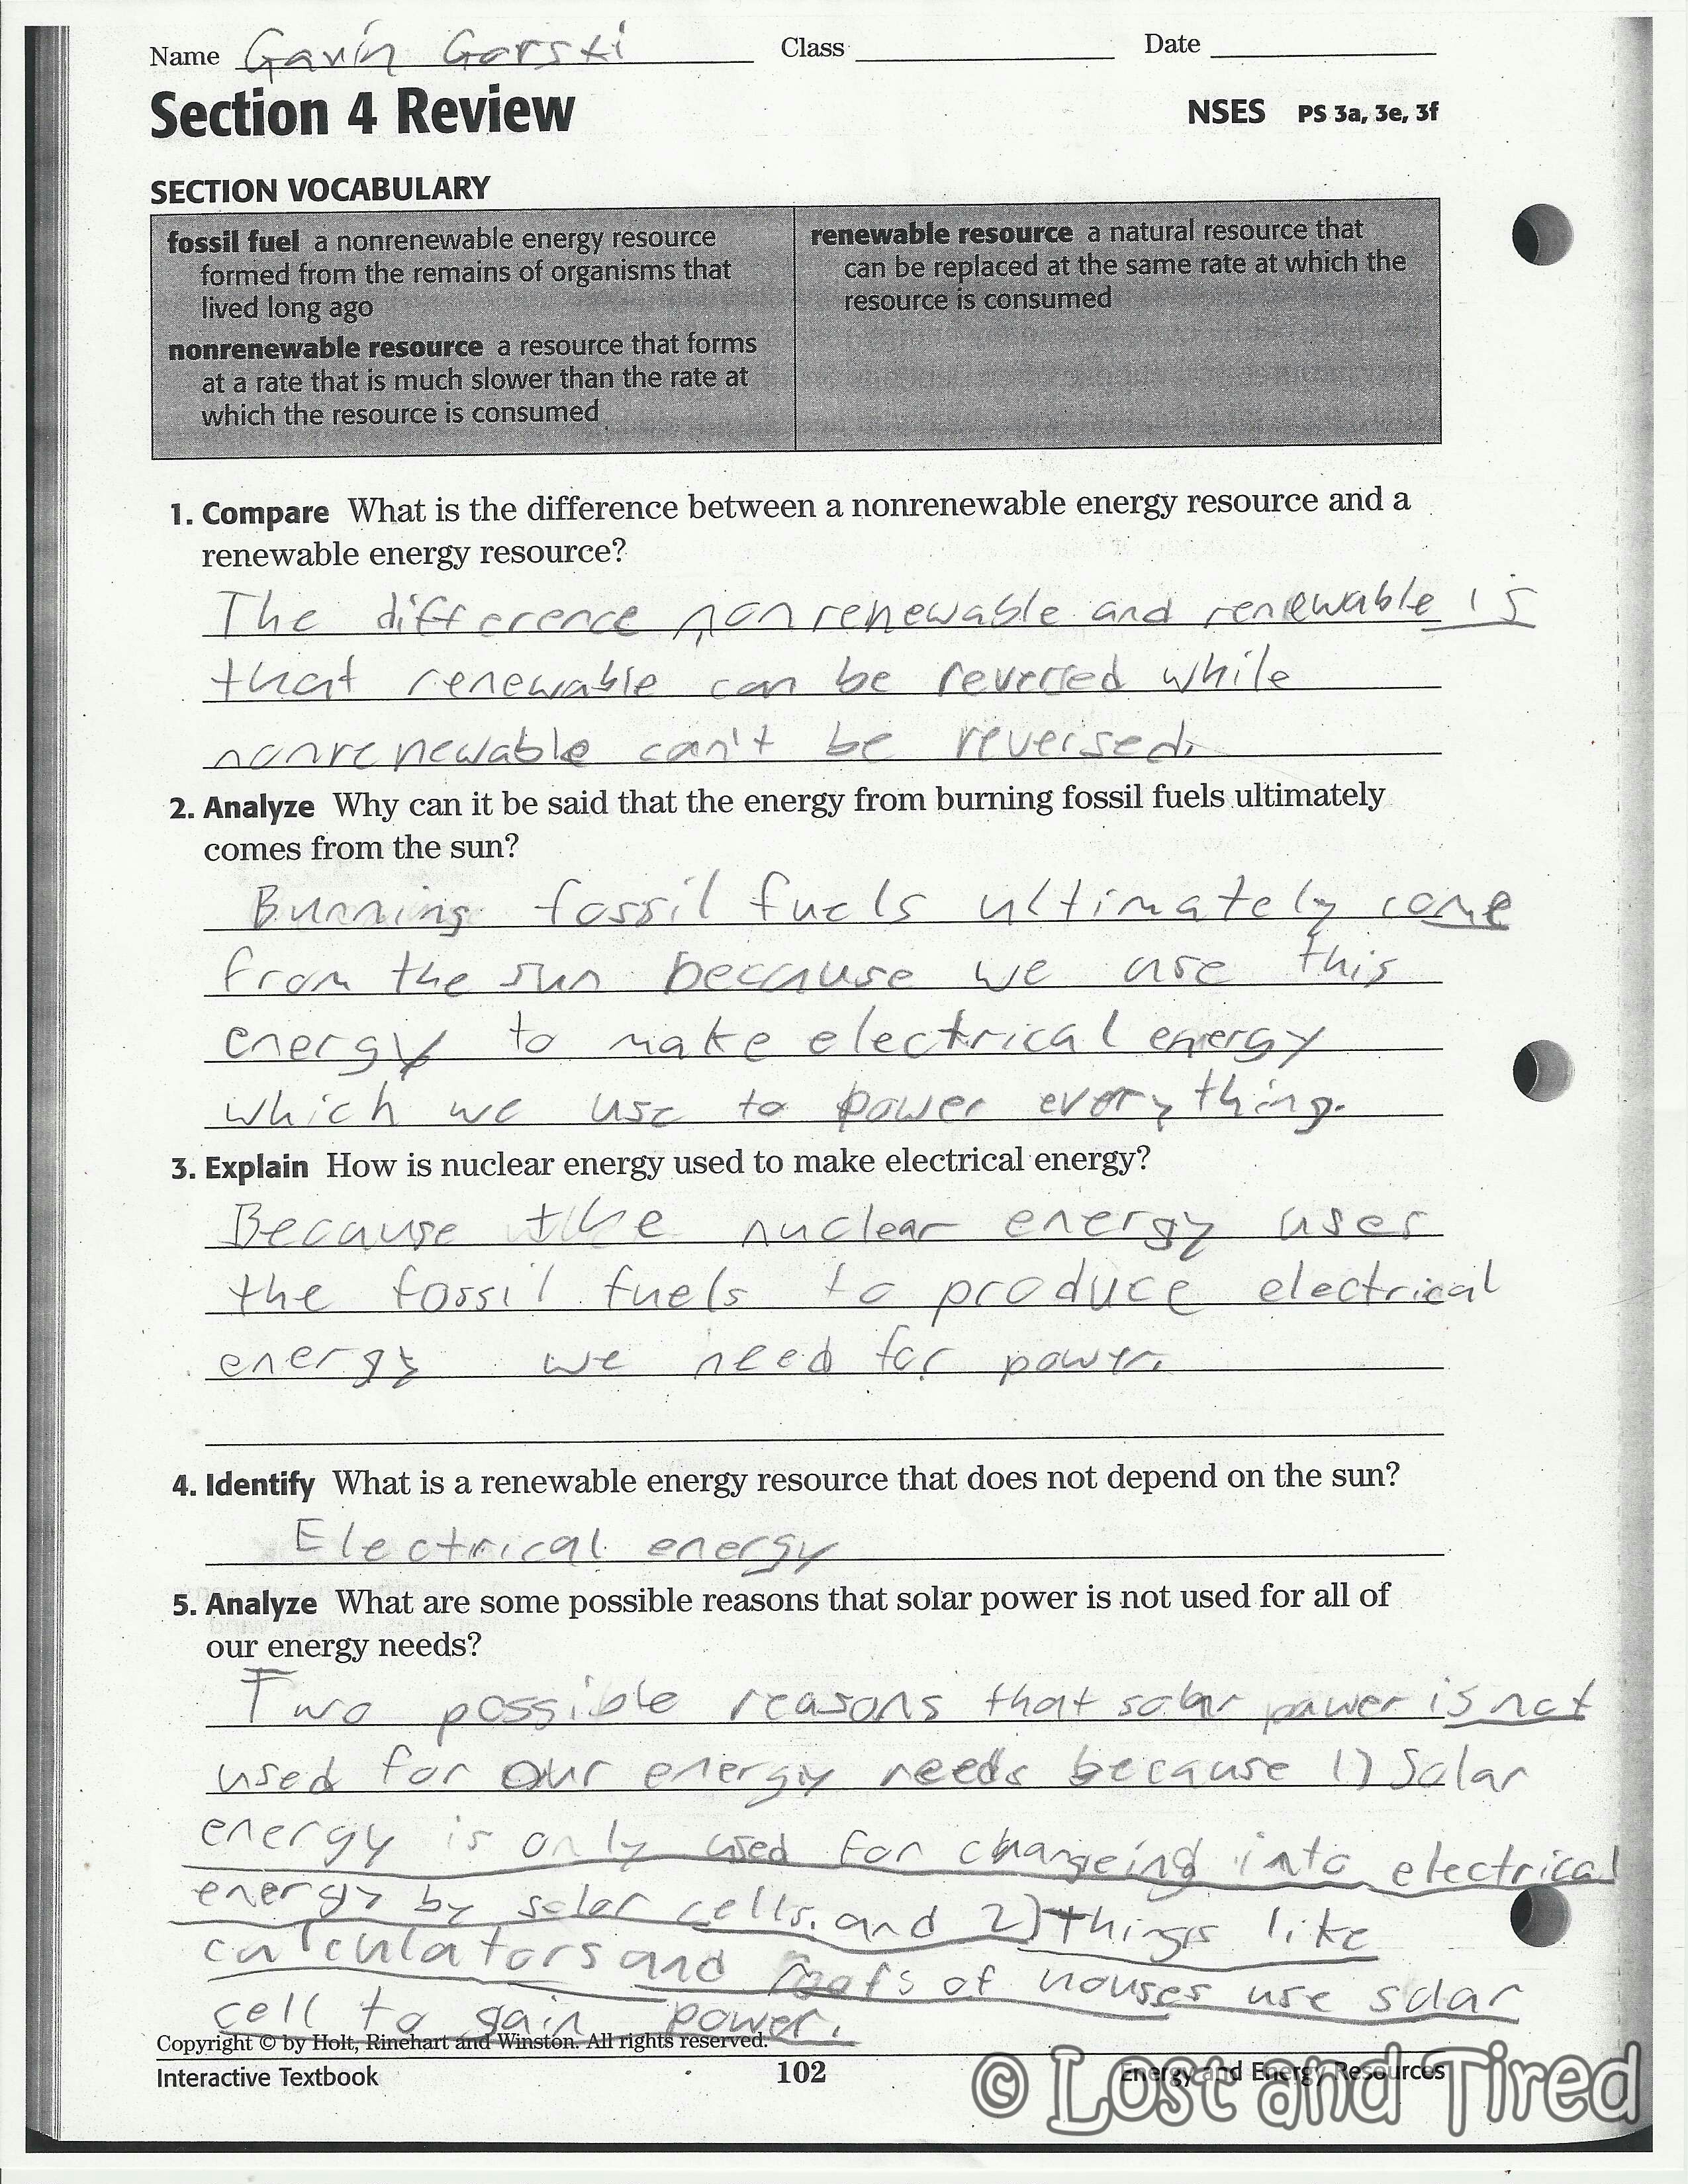 Name Gavin Gorski Class Date
Section 4 Review NSES PS 3a, 3e, 3f
SECTION VOCABULARY
fossil fuel a nonrenewable energy resource
formed from the remains of organisms that
lived long ago
nonrenewable resource a resource that forms
at a rate that is much slower than the rate at
which the resource is consumed
renewable resource a natural resource that
can be replaced at the same rate at which the
resource is consumed
1. Compare What is the difference between a nonrenewable energy resource and a
renewable energy resource?
The difference nonrenewable and renewable is
that renewable can be reversed while
nonrenewable can't be reversed.
2. Analyze Why can it be said that the energy from burning fossil fuels ultimately
comes from the sun?
Burning fossil fuels ultimately come
from the sun because we use this
energy to make electrical energy
which we use to power everything.
3. Explain How is nuclear energy used to make electrical energy?
Because the nuclear energy uses
the fossil fuels to produce electrical
energy we need for power.
4. Identify What is a renewable energy resource that does not depend on the sun?
Electrical energy
5. Analyze What are some possible reasons that solar power is not used for all of
our energy needs?
Two possible reasons that solar power is not
used for our energy needs because 1) Solar
energy is only used for changeing into electrical
energy by solar cells. and 2) things like
calculators and roofs of houses use solar
cell to gain power.
Copyright © by Holt, Rinehart and Winston. All rights reserved.
Interactive Textbook 102 Energy and Energy Resources
© Lost and Tired